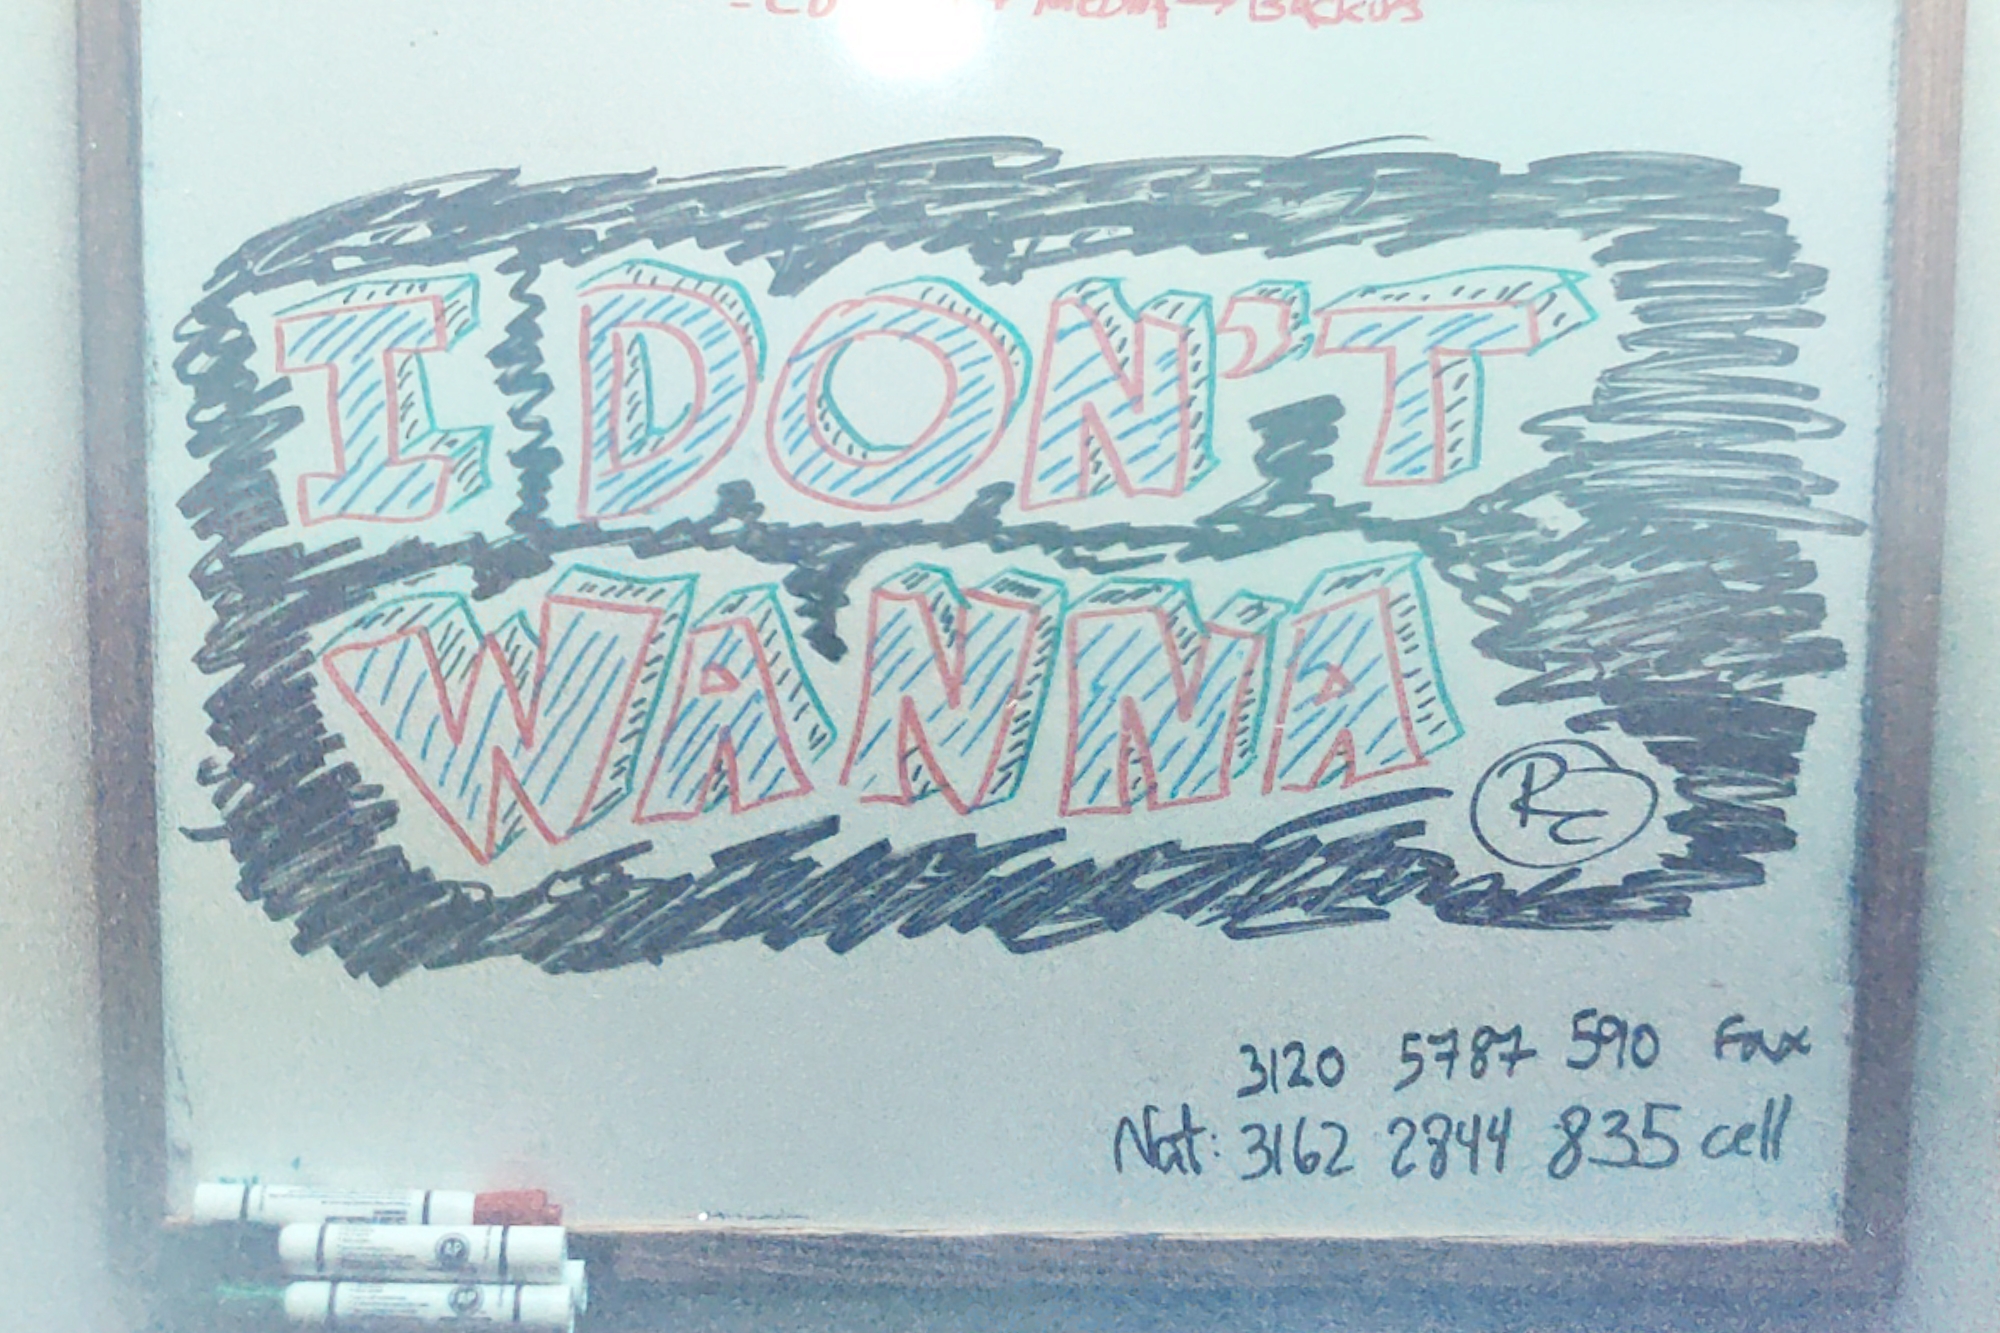 MEDIA → BACKUPS
I DON'T
WANNA
RC
3120 5787 590 Fax
Nat: 3162 2844 835 cell